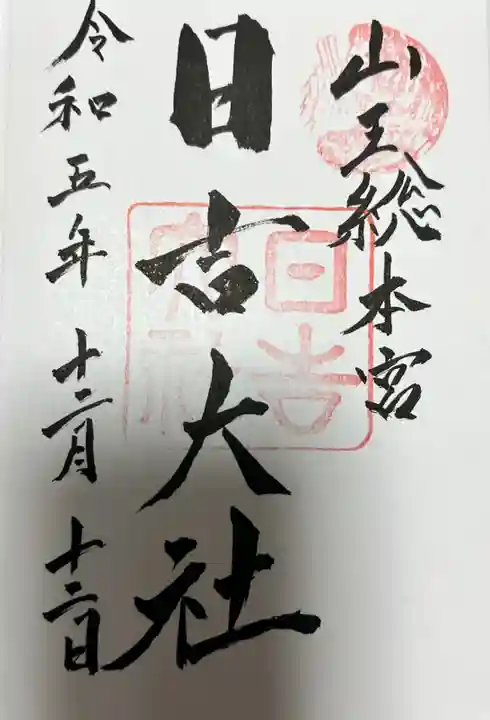 山王総本宮
日吉大社
日吉大社
令和五年十二月十三日